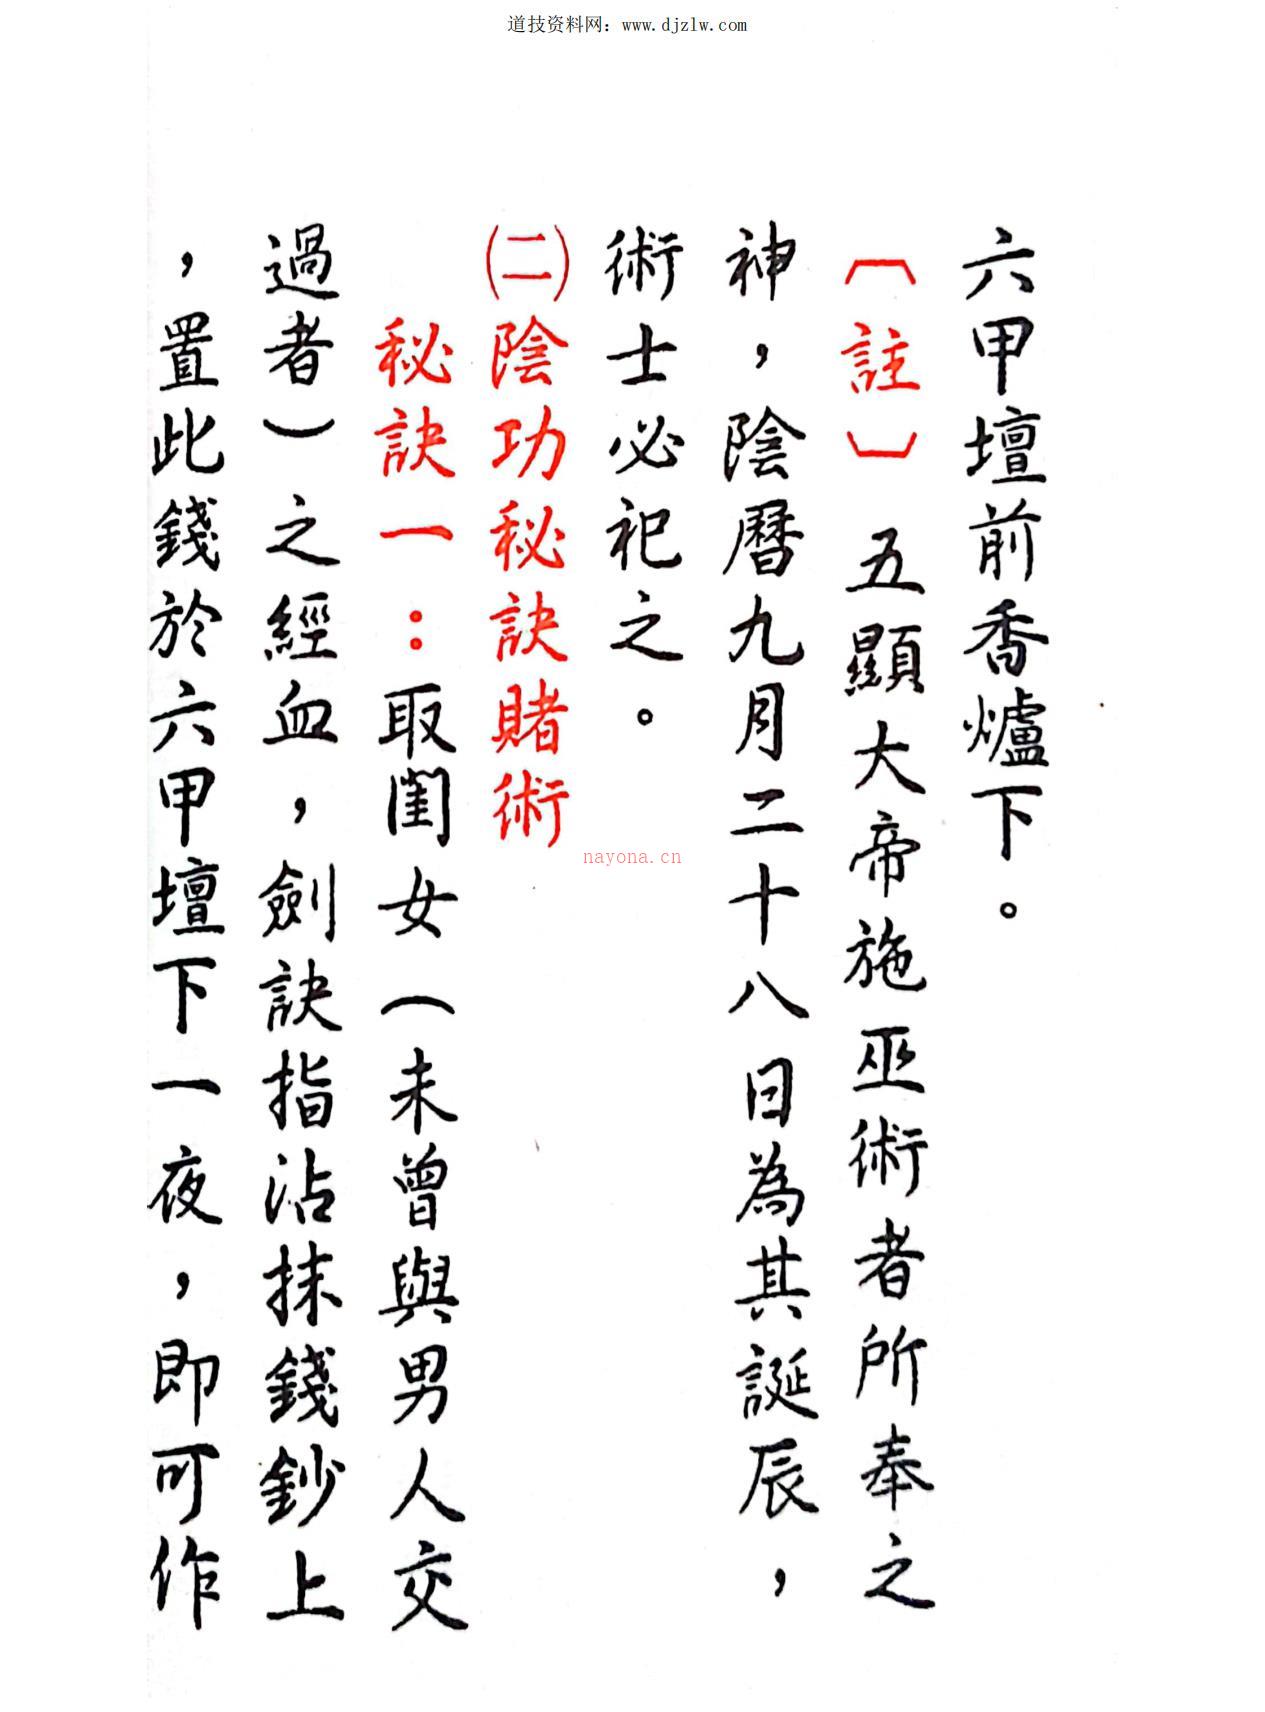 道技资料网：www.djzlw.com
六甲壇前香爐下。
〔註〕 五顯大帝施巫術者所奉之
神，陰曆九月二十八日為其誕辰，
術士必祀之。
㈡陰功秘訣賭術
秘訣一：取閨女（未曾與男人交
過者）之經血，劍訣指沾抹錢鈔上
，置此錢於六甲壇下一夜，即可作
nayona.cn